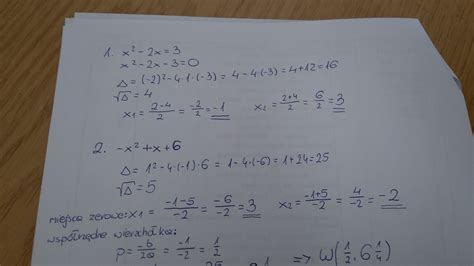 1. x² - 2x = 3
x² - 2x - 3 = 0
Δ = (-2)² - 4·1·(-3) = 4 - 4(-3) = 4 + 12 = 16
√Δ = 4
x₁ = (2-4)/2 = -2/2 = -1 x₂ = (2+4)/2 = 6/2 = 3
2. -x² + x + 6
Δ = 1² - 4·(-1)·6 = 1 - 4·(-6) = 1 + 24 = 25
√Δ = 5
miejsca zerowe: x₁ = (-1-5)/-2 = -6/-2 = 3 x₂ = (-1+5)/-2 = 4/-2 = -2
współrzędne wierzchołka:
p = -b/2a = -1/-2 = 1/2 => W(1/2, 6 1/4)